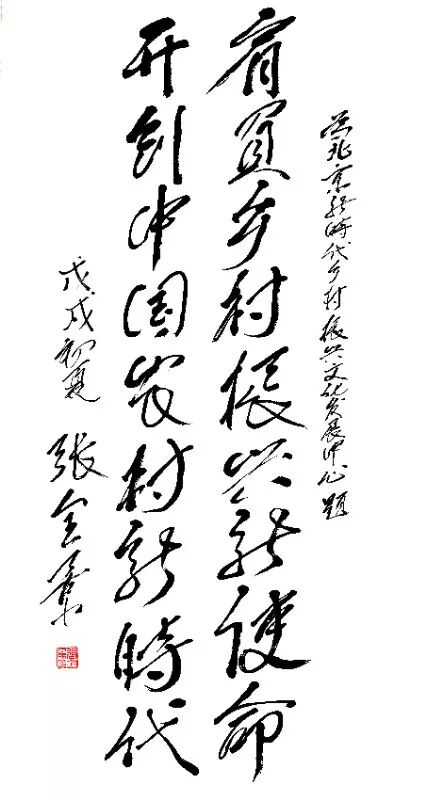 为北京新時代乡村振兴文化发展中心题
肩负乡村振兴新使命
开创中国农村新時代
戊戌初夏
张全景